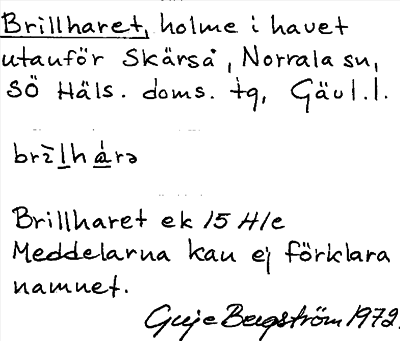 Brillharet, holme i havet
utanför Skärså, Norrala sn,
SÖ Häls. doms. tg, Gävl.l.
brìlhárə
Brillharet ek 15 H1e
Meddelarna kan ej förklara
namnet.
Bergström 1972.